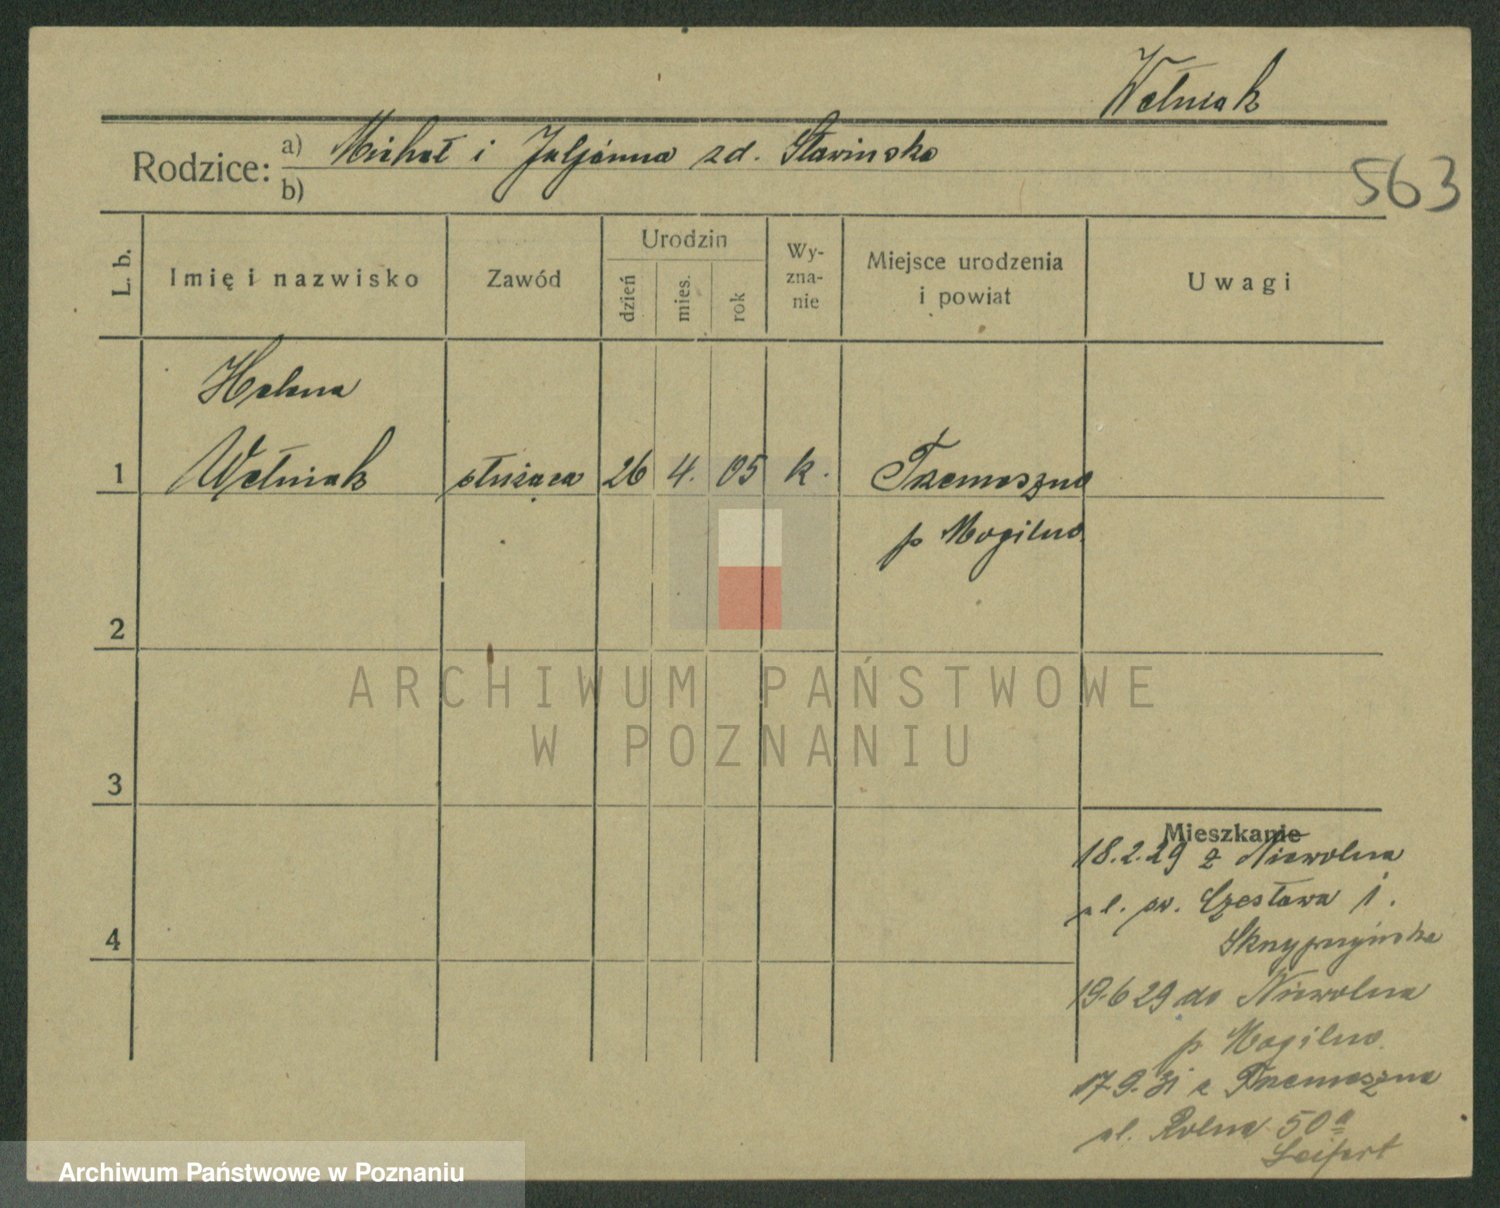 Wełniak
Rodzice: a) Michał i Juljánna zd. Sławinska
b)
563
L. b. Imię i nazwisko Zawód Urodzin dzień mies. rok Wy-zna-nie Miejsce urodzenia i powiat Uwagi
Helena
1 Wełniak służąca 26 4. 05 k. Trzemeszno
p Mogilno.
2
ARCHIWUM PAŃSTWOWE
W POZNANIU
3
Mieszkanie
18.2.29 z Niewolna
ul. św. Czesława 1.
4
19.6 29 do Niewolna
p Mogilno.
17.9.31 z Trzemeszna
ul. Rolna 50a
Seifert
Archiwum Państwowe w Poznaniu